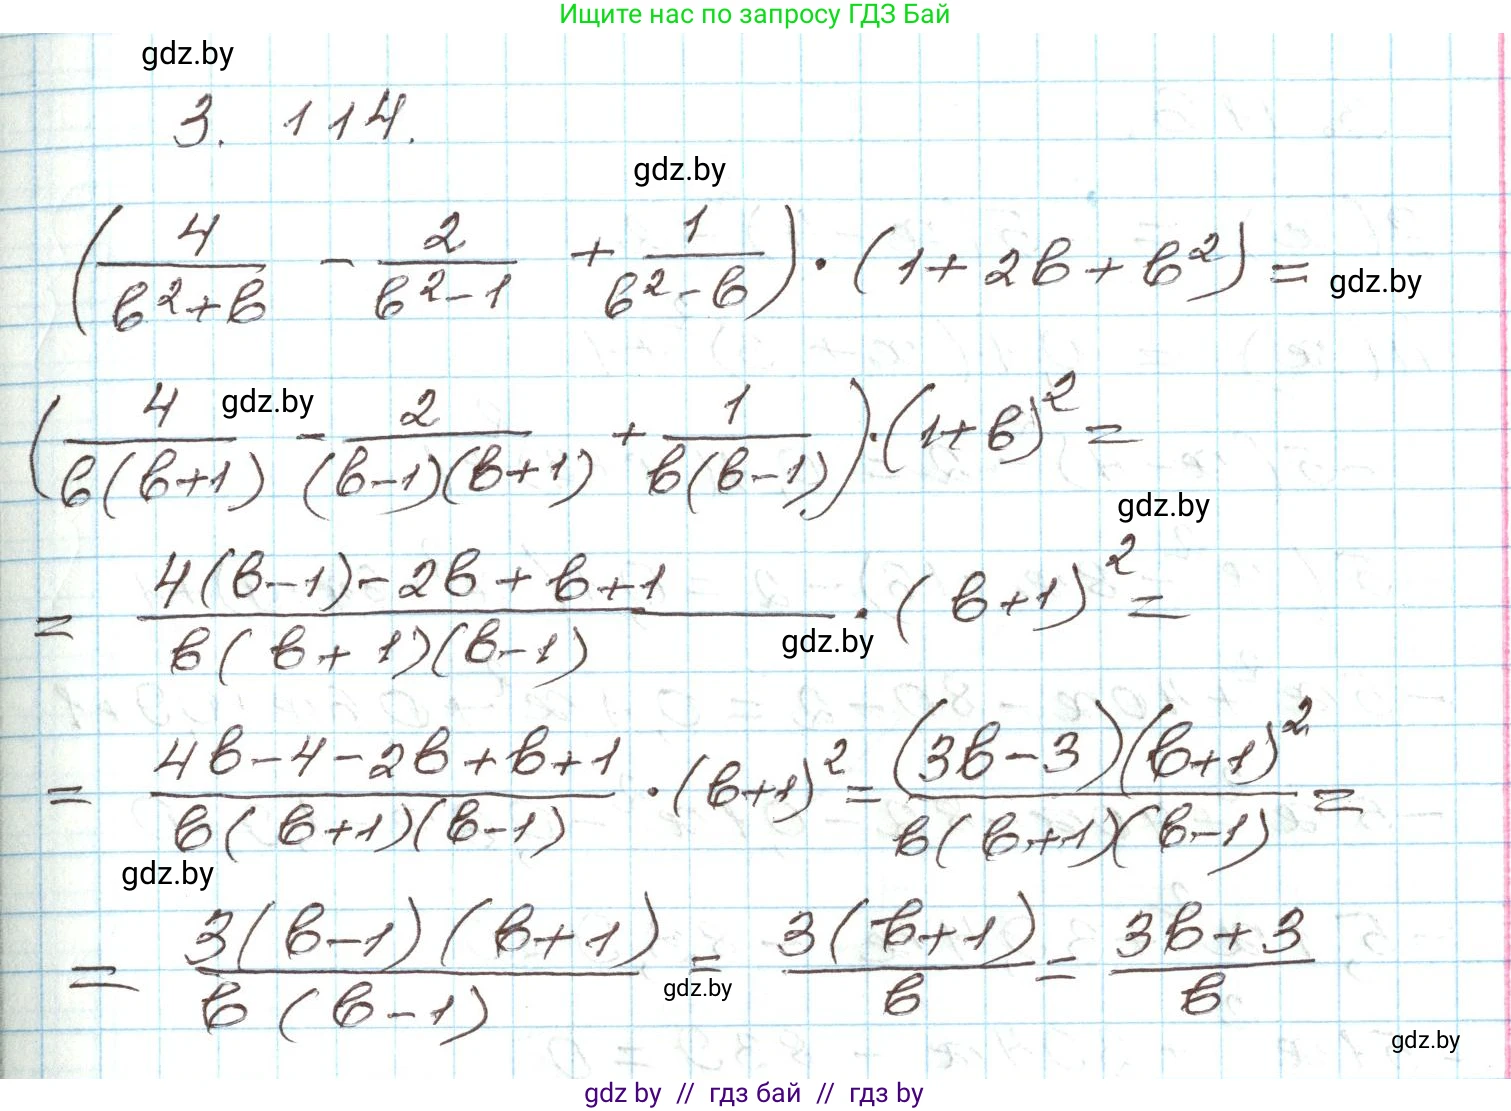 Ищите нас по запросу ГДЗ Бай
gdz.by
3. 114.
gdz.by
(4/(b²+b) - 2/(b²-1) + 1/(b²-b)) · (1+2b+b²) =
gdz.by
gdz.by
(4/(b(b+1)) - 2/((b-1)(b+1)) + 1/(b(b-1))) · (1+b)² =
gdz.by
= (4(b-1)-2b+b+1)/(b(b+1)(b-1)) · (b+1)² =
gdz.by
= (4b-4-2b+b+1)/(b(b+1)(b-1)) · (b+1)² = ((3b-3)(b+1)²)/(b(b+1)(b-1)) =
gdz.by
= (3(b-1)(b+1))/(b(b-1)) = (3(b+1))/b = (3b+3)/b
gdz.by
gdz.by
gdz by // гдз бай // гдз by